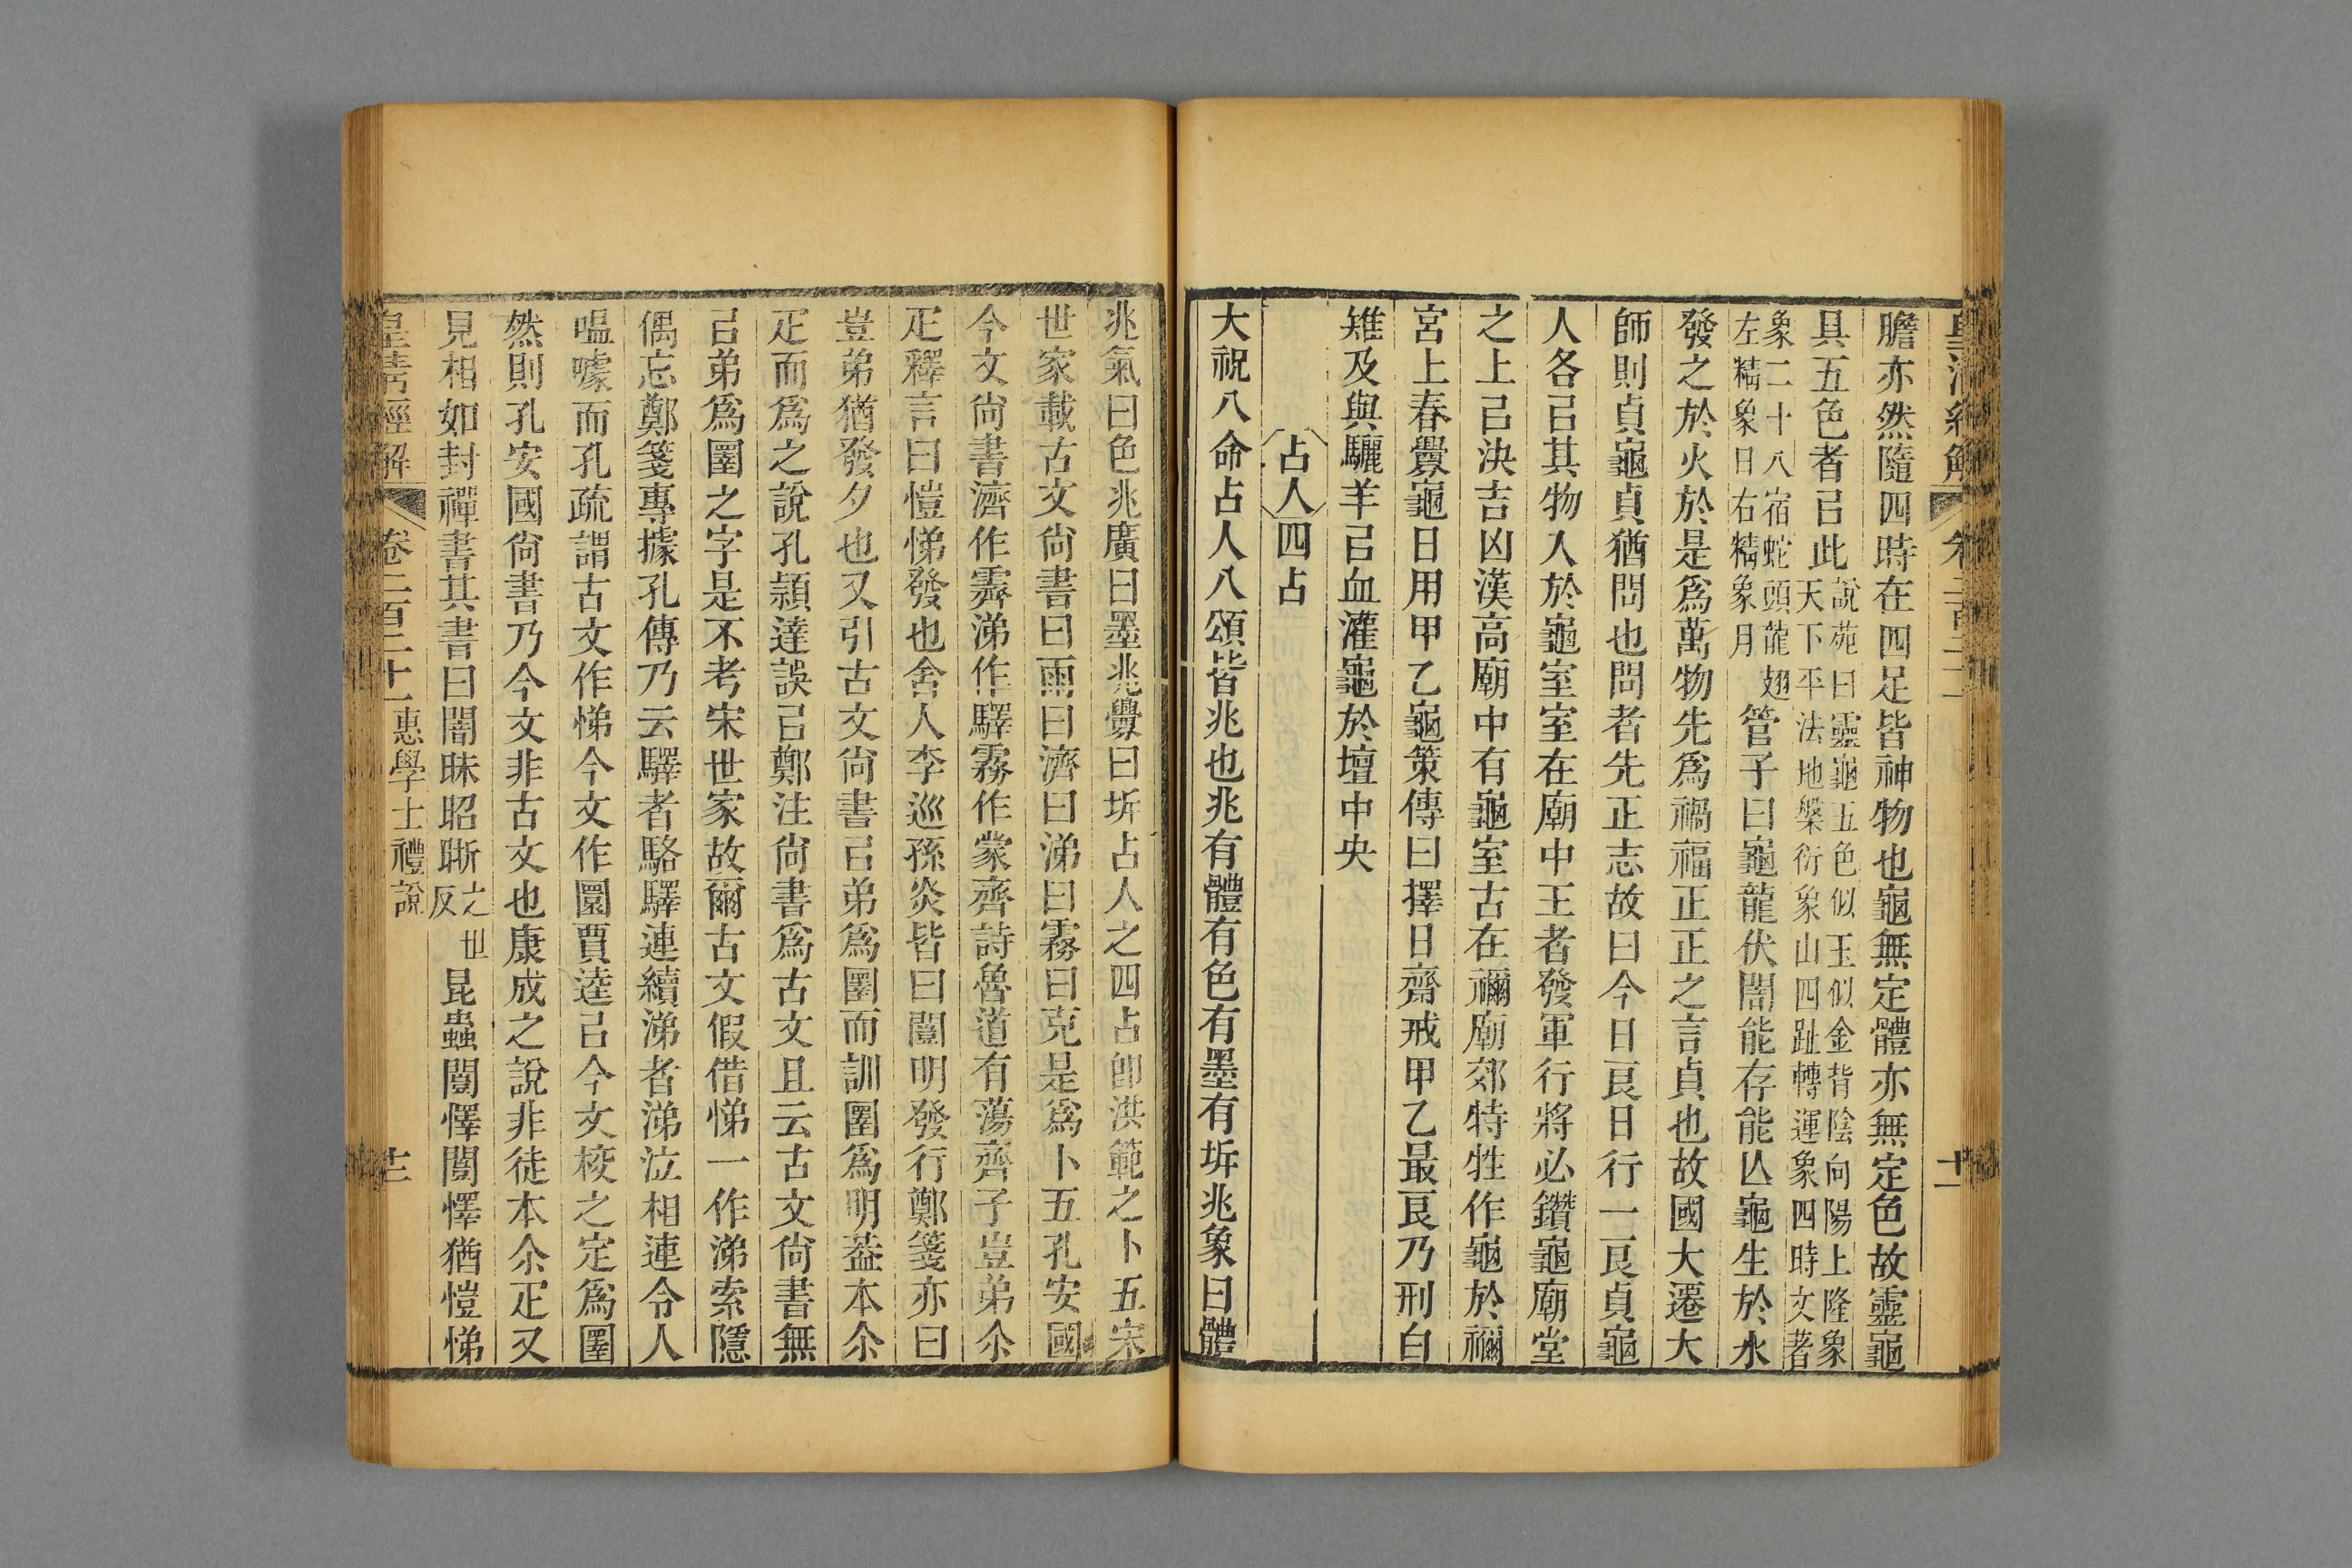 皇清經解 卷二百二十一 十一
膽亦然隨四時在四足皆神物也龜無定體亦無定色故靈龜
具五色者㠯此說苑曰靈龜五色似玉似金背陰向陽上隆象天下平法地槃衍象山四趾轉運象四時文著
象二十八宿蛇頭龍翅左精象日右精象月管子曰龜龍伏闇能存能亾龜生於水
發之於火於是爲萬物先爲禍福正正之言貞也故國大遷大
師則貞龜貞猶問也問者先正志故曰今日良日行一良貞龜
人各㠯其物入於龜室室在廟中王者發軍行將必鑽龜廟堂
之上㠯決吉凶漢高廟中有龜室古在禰廟郊特牲作龜於禰
宮上春釁龜日用甲乙龜策傳曰擇日齋戒甲乙最良乃刑白
雉及與驪羊㠯血灌龜於壇中央
占人四占
大祝八命占人八頌皆兆也兆有體有色有墨有坼兆象曰體
兆氣曰色兆廣曰墨兆釁曰坼占人之四占卽洪範之卜五宋
世家載古文尙書曰雨曰濟曰涕曰霧曰克是爲卜五孔安國
今文尙書濟作霽涕作驛霧作蒙齊詩魯道有蕩齊子豈弟尒
疋釋言曰愷悌發也舍人李巡孫炎皆曰闓明發行鄭箋亦曰
豈弟猶發夕也又引古文尙書㠯弟爲圛而訓圛爲明葢本尒
疋而爲之說孔穎達誤㠯鄭注尙書爲古文且云古文尙書無
㠯弟爲圛之字是不考宋世家故爾古文假借悌一作涕索隱
偶忘鄭箋專據孔傳乃云驛者駱驛連續涕者涕泣相連令人
嗢噱而孔疏謂古文作悌今文作圛賈逵㠯今文校之定爲圛
然則孔安國尙書乃今文非古文也康成之說非徒本尒疋又
見相如封禪書其書曰闇昧昭晰之世反昆蟲闓懌闓懌猶愷悌
皇淸經解 卷二百二十一 惠學士禮說 十二